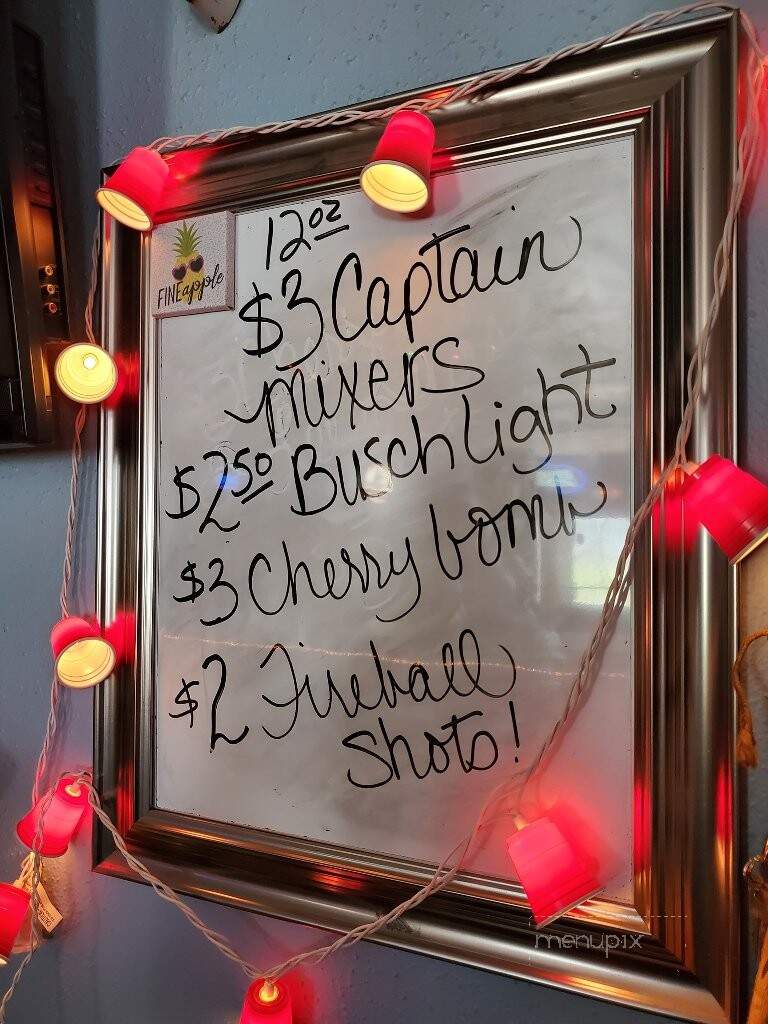 FINEapple
12oz
$3 Captain
mixers
$2 50 Busch Light
$3 Cherry bomb
$2 Fireball
Shots!
menupix